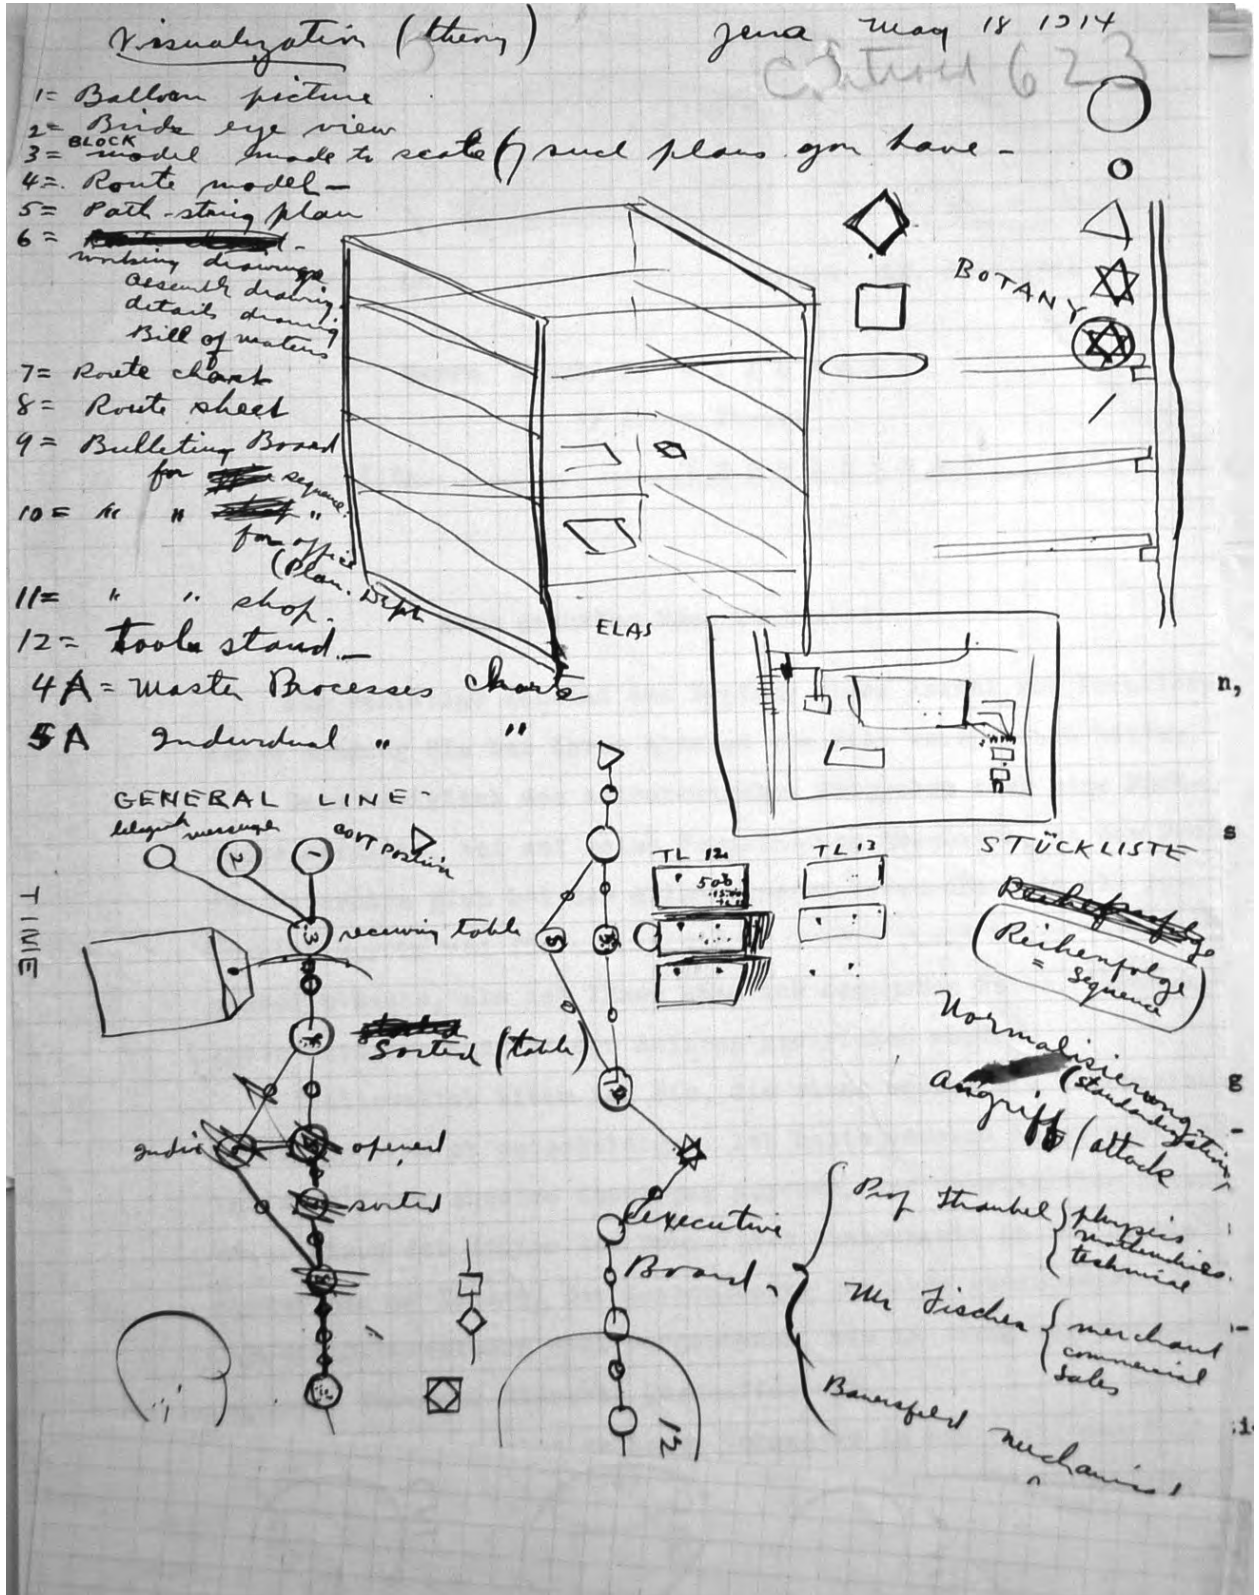 Visualization (theory)
Jena May 18 1914
623
1= Balloon picture
2= Birds eye view
3= BLOCK model made to scale (if such plans you have -
4= Route model -
5= Path-string plan
6=
working drawings
assembly drawing
details drawing
Bill of maters
7= Route chart
8= Route sheet
9= Bulleting Board
for sequence
10= " " "
for office
(Plan. Dept
11= " " shop.
12= Tools stand -
4A = Master Processes Charts
5A Individual " "
BOTANY
ELAS
n,
GENERAL LINE -
telegraph messenger
GOVT Position
2
1
TIME
3
receiving table
Sorted (table)
opened
sorted
5
TL 12
TL 13
508
STÜCKLISTE
s
Reihenfolge
= sequence
Normalisierung
(standardization,
g
Angriff (attack
-
Executive
Board -
Prof Straubel
physics
mathematics
technical
Mr Fischer
merchant
commercial
sales
Bauersfeld mechanics
12